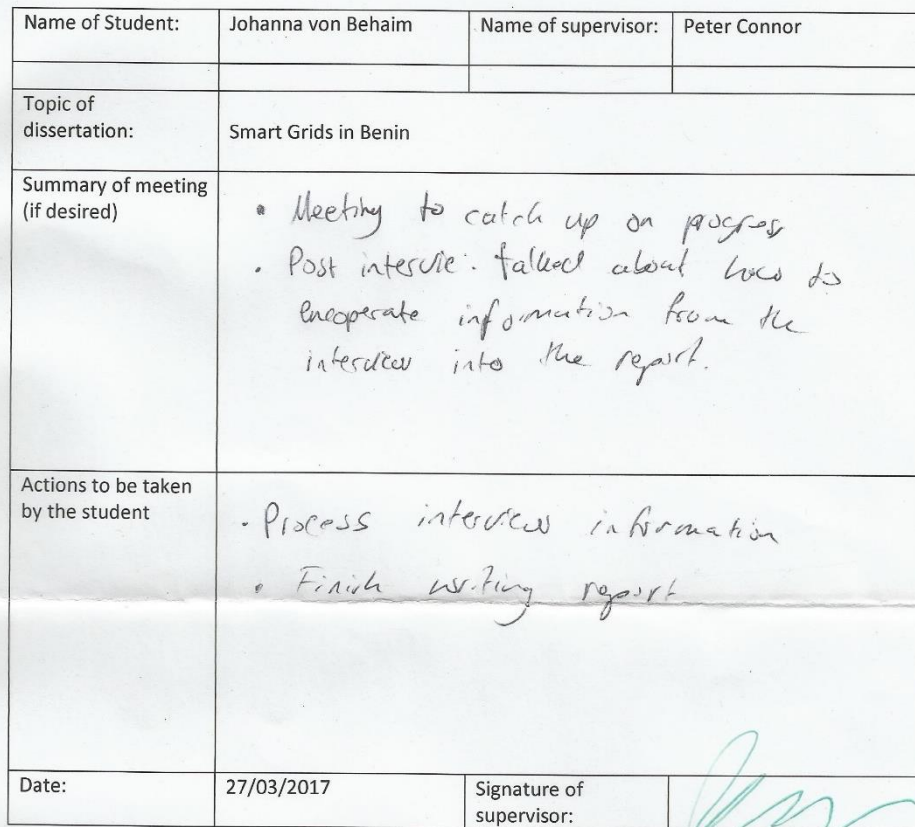 Name of Student: Johanna von Behaim Name of supervisor: Peter Connor
Topic of
dissertation: Smart Grids in Benin
Summary of meeting
(if desired)
• Meeting to catch up on progress
• Post intervie. talked about how to
encoperate information from the
interview into the report.
Actions to be taken
by the student
• Process interview information
• Finish writing report
Date: 27/03/2017 Signature of
supervisor: